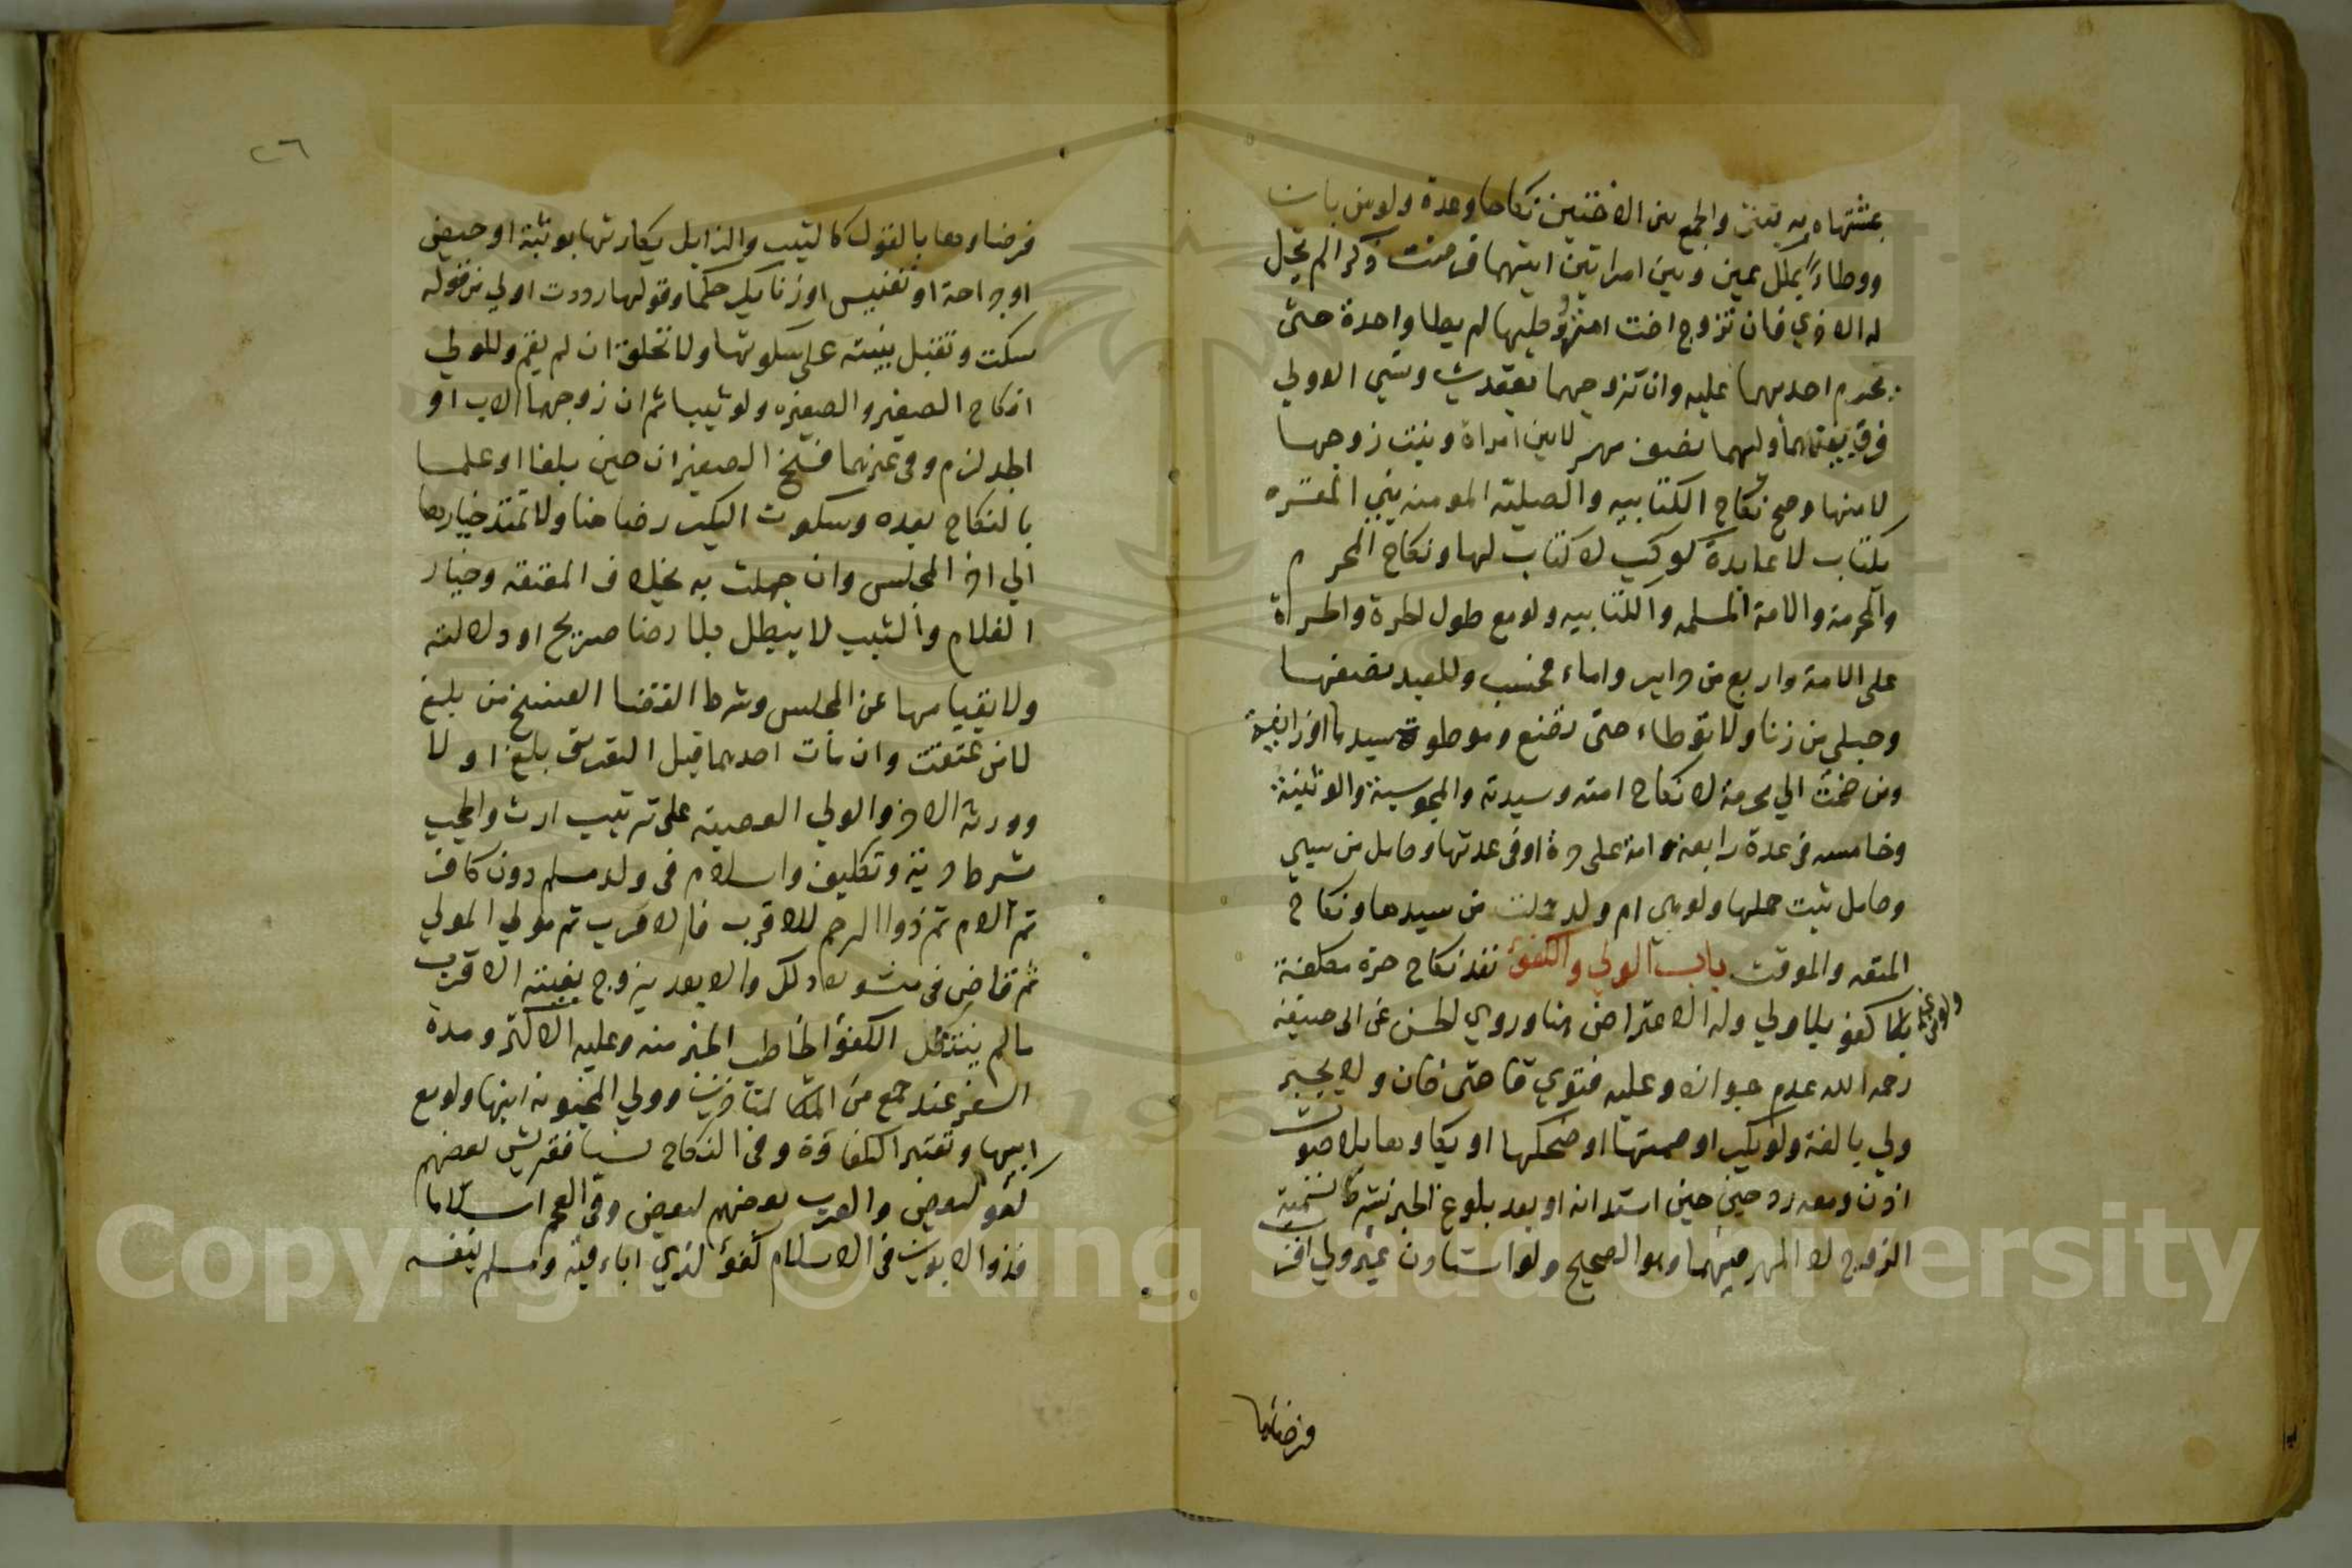 به يفتى والجمع بين الاختين نكاحا وعدة ولو من باين
ووطاء بملك يمين وبين امراتين ايتهما فرضت ذكرا لم تحل
له الاخري فان تزوج اخت امته وطيها لم يطا واحدة حتى
يحرم احديهما عليه وان تزوجهما بعقدين ونسي الاولي
فرق بينهما ولهما نصف مهر لا بين امراة وبنت زوجها
لا منها وصح نكاح الكتابيه والصابيه المومنه بنبي المقره
بكتاب لا عابدة كوكب لا كتاب لها ونكاح المحرم
والمحرمة والامة المسلمه والكتابيه ولو مع طول الحرة والحرة
على الامة واربع من حراير واماء فحسب وللعبد نصفها
وحبلي من زنا ولا توطاء حتى تضع وموطوة سيدها او زانية
ومن ضمت الي محرمة لا نكاح امته وسيدته والمجوسية والوثنية
وخامسه في عدة رابعة وامة على حرة او في عدتها وحامل من سبي
وحامل ثبت حملها ولو هي ام ولد حملت من سيدها ونكاح
المتعه والموقت باب الولي والكفؤ نفذ نكاح حرة مكلفة
بلا كفو بلا ولي وله الاعتراض هنا وروي الحسن عن ابي حنيفة
رحمه الله عدم جوازه وعليه فتوي قاضي خان ولا يجبر
ولي بالغة ولو بكر او صمتها او ضحكها او بكاوها بلا صوت
اذن ومعه رد حين استيذانه او بعد بلوغ الخبر بشرط تسمية
الزوج لا المهر فيهما وهو الصحيح ولو استاذن غير ولي اقرب
فرضاها
٢٦
فرضاوها بالقول كالثيب والزايل بكارتها بوثبة او حيض
او جراحة او تعنيس او زنا بكر حكما وقولها رددت اولي من قوله
سكت وتقبل بينته على سكوتها ولا تحلف ان لم يقم وللولي
انكاح الصغير والصغيره ولو ثيبا ثم ان زوجهما الاب او
الجد لزم وفي غيرهما فسخ الصغيران حين بلغا او علما
بالنكاح بعده وسكوت البكر رضا هنا ولا تمتد خيارها
الي اخر المجلس وان جهلت به بخلاف المعتقه وخيار
الغلام والثيب لا يبطل بلا رضا صريح او دلالته
ولا بقيامها عن المجلس وشرط القضا لفسخ من بلغ
لا من عتقت وان مات احدهما قبل التفريق بلغ او لا
وورثه الاخر والولي العصبه على ترتيب ارث والحجب
بشرط حرية وتكليف واسلام في ولد مسلم دون كافر
ثم الام ثم ذوا الرحم الاقرب فالاقرب ثم مولي الموالي
ثم قاض في منشوره ذلك والابعد يزوج بغيبة الاقرب
ما لم ينتظر الكفؤ الخاطب الخبر منه وعليه الاكثر ومدة
السفر عند جمع من المتاخرين وولي المجنونه ابنها ولو مع
ابيها وتعتبر الكفاءة في النكاح نسبا فقريش بعضهم
كفو لبعض والعرب بعضهم لبعض وفي العجم اسلاما
فذوا الابوين في الاسلام كفؤ لذي اباء فيه ومسلم بنفسه